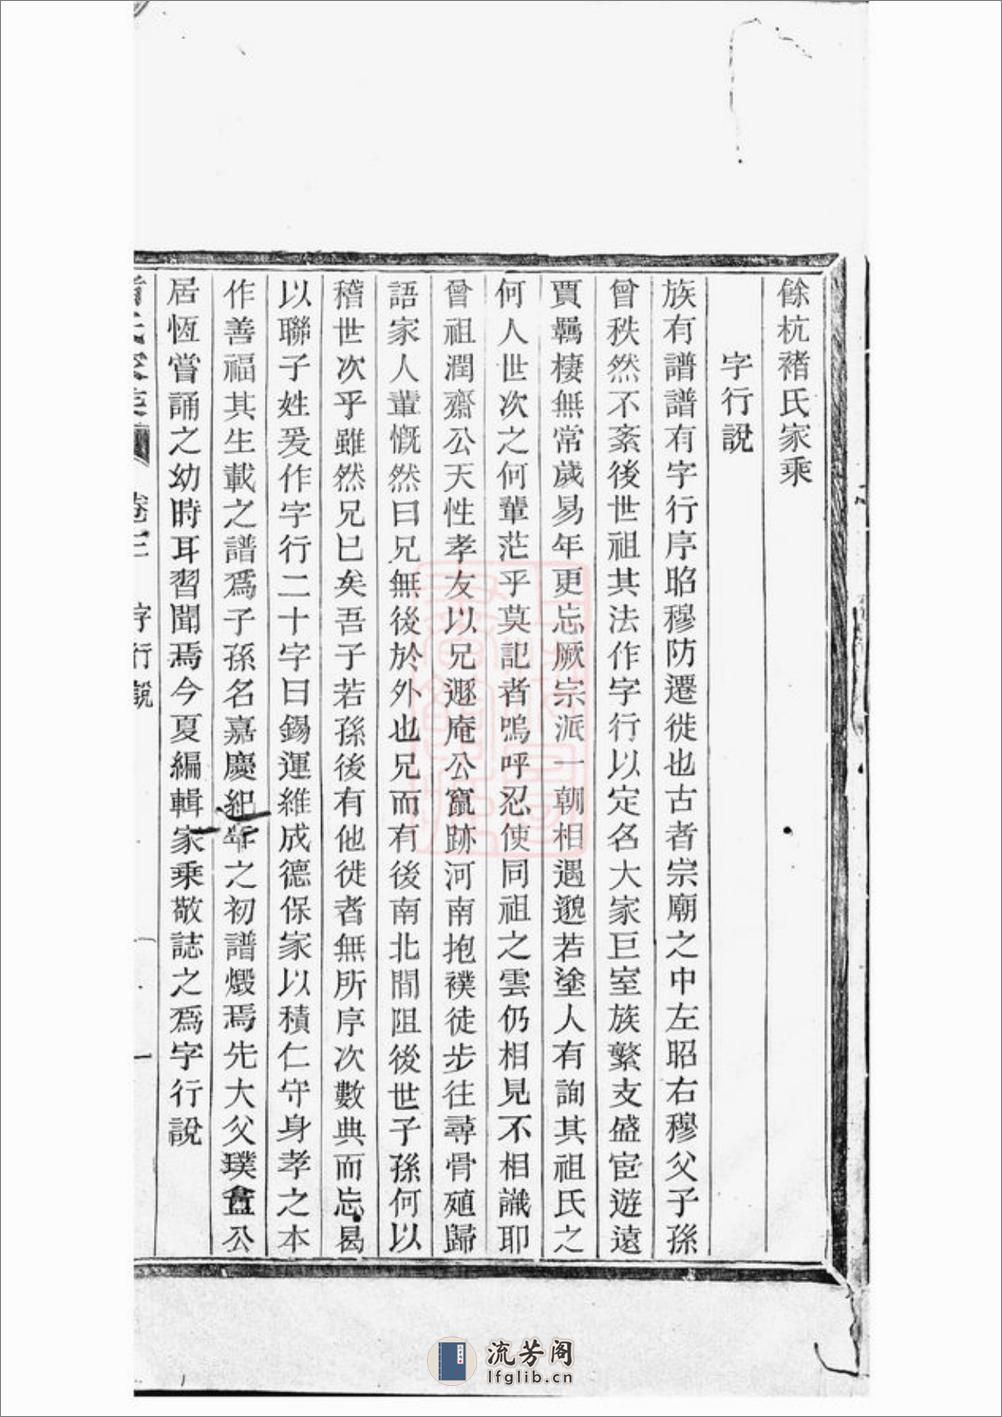 餘杭褚氏家乘
字行說
族有譜譜有字行序昭穆防遷徙也古者宗廟之中左昭右穆父子孫
曾秩然不紊後世祖其法作字行以定名大家巨室族繁支盛宦遊遠
賈羈棲無常歲易年更忘厥宗派一朝相遇邈若塗人有詢其祖氏之
何人世次之何輩茫乎莫記者嗚呼忍使同祖之雲仍相見不相識耶
曾祖潤齋公天性孝友以兄遯庵公竄跡河南抱襆徒步往尋骨殖歸
語家人輩慨然曰兄無後於外也兄而有後南北間阻後世子孫何以
稽世次乎雖然兄已矣吾子若孫後有他徙者無所序次數典而忘曷
以聯子姓爰作字行二十字曰錫運維成德保家以積仁守身孝之本
作善福其生載之譜爲子孫名嘉慶紀年之初譜燬焉先大父璞盦公
居恆嘗誦之幼時耳習聞焉今夏編輯家乘敬誌之爲字行說
卷三 字行說 一
流芳阁
lfglib.cn